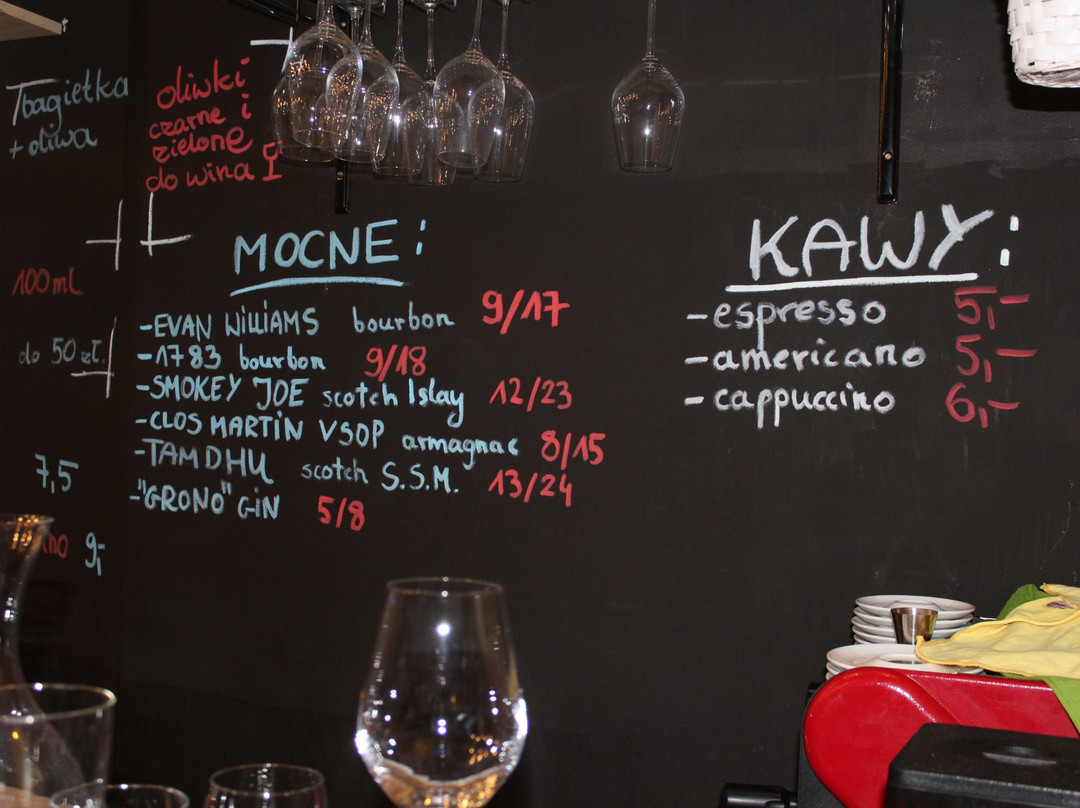 bagietka
+ oliwa
oliwki
czarne i
zielone
do wina
100ml
do 50 zł.
7,5
9,-
MOCNE:
-EVAN WILLIAMS bourbon 9/17
-1783 bourbon 9/18
-SMOKEY JOE scotch Islay 12/23
-CLOS MARTIN VSOP armagnac 8/15
-TAMDHU scotch S.S.M. 13/24
-"GRONO" GIN 5/8
KAWY:
-espresso 5,-
-americano 5,-
-cappuccino 6,-